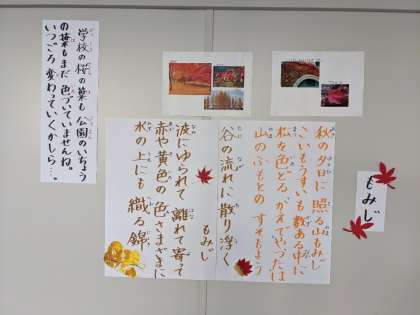 もみじ
秋の夕日に 照る山もみじ
こいもうすいも 数ある中に
松を色どる かえでやつたは
山のふもとの すそもよう
谷の流れに 散り浮く もみじ
波にゆられて 離れて寄って
赤や黄色の 色さまざまに
水の上にも 織る錦
学校の桜の葉も公園のいちょう
の葉もまだ色づいていませんね。
いつごろ変わっていくかしら…。